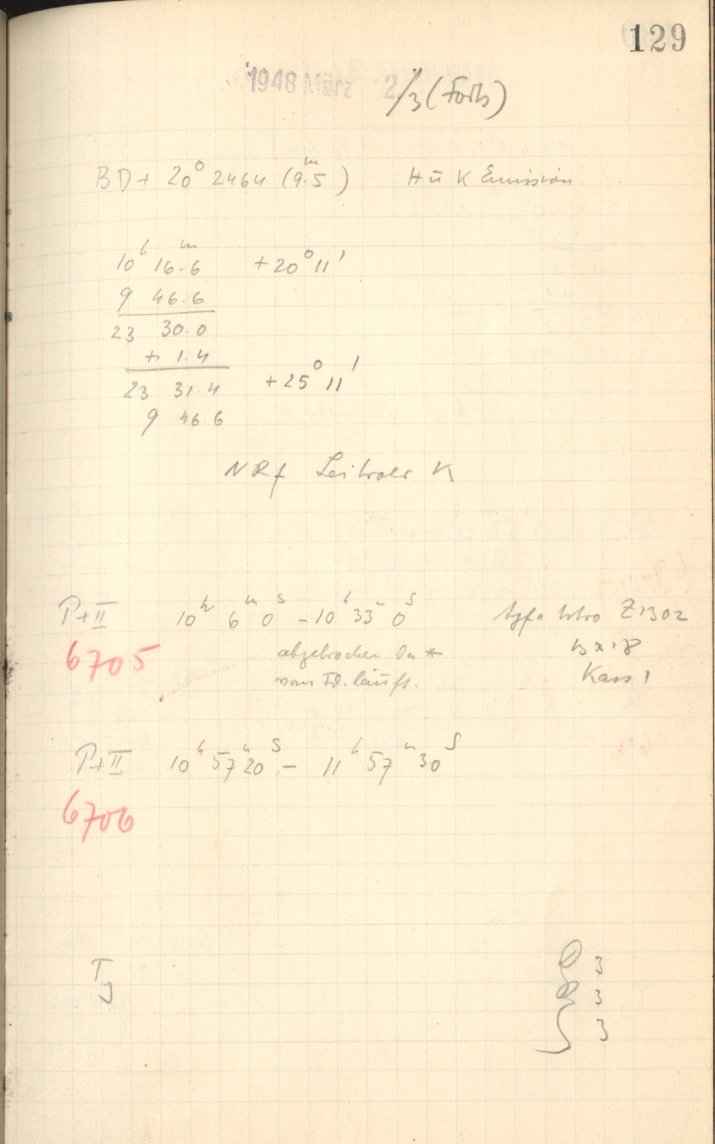 129
1948 März 2/3 (Forts)
BD + 20° 2464 (9.5ᵐ) H u K Emission
10ʰ 16.6ᵐ +20° 11'
9 46.6
23 30.0
+ 1.4
23 31.4 +25° 11'
9 46.6
NRf Leitrohr K
Pl II 10ʰ 6ᵐ 0ˢ - 10ʰ 33ᵐ 0ˢ Agfa Astro Z1302
6705 abgebrochen da * 13 x 18
vom Fd. läuft. Kass 1
Pl II 10ʰ 57ᵐ 20ˢ - 11ʰ 57ᵐ 30ˢ
6706
3
3
3